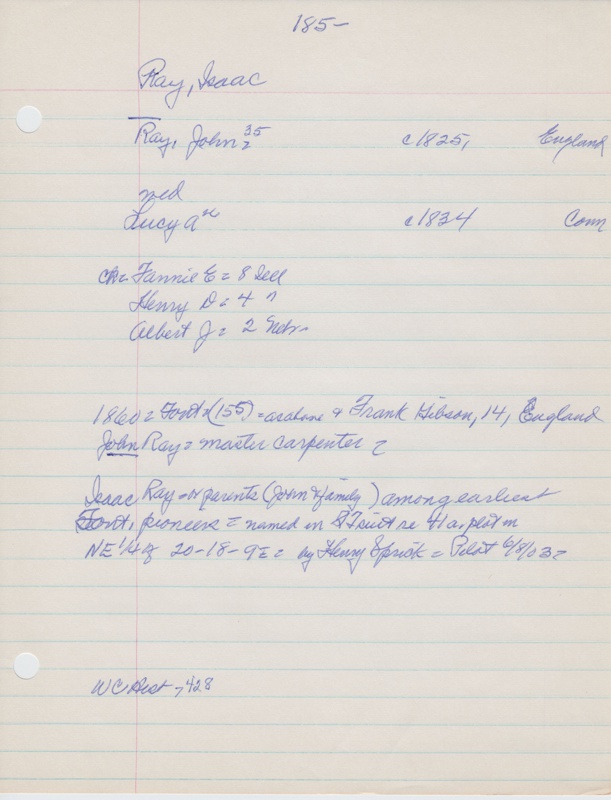 185-
Ray, Isaac
Ray, John 35 c1825, England
med
Lucy A c1834 Conn
ch = Fannie E = 8 Ill
Henry D = 4 "
Albert J = 2 Nebr
1860 = Font (155) = as above & Frank Gibson, 14, England
John Ray = master carpenter =
Isaac Ray - or parents (John & family) among earliest
Font, pioneers = named in suit re 41 a. plot in
NE 1/4 of 20-18-9E = by Henry Sprick = Pilot 6/8/03 =
WC Hist - 428